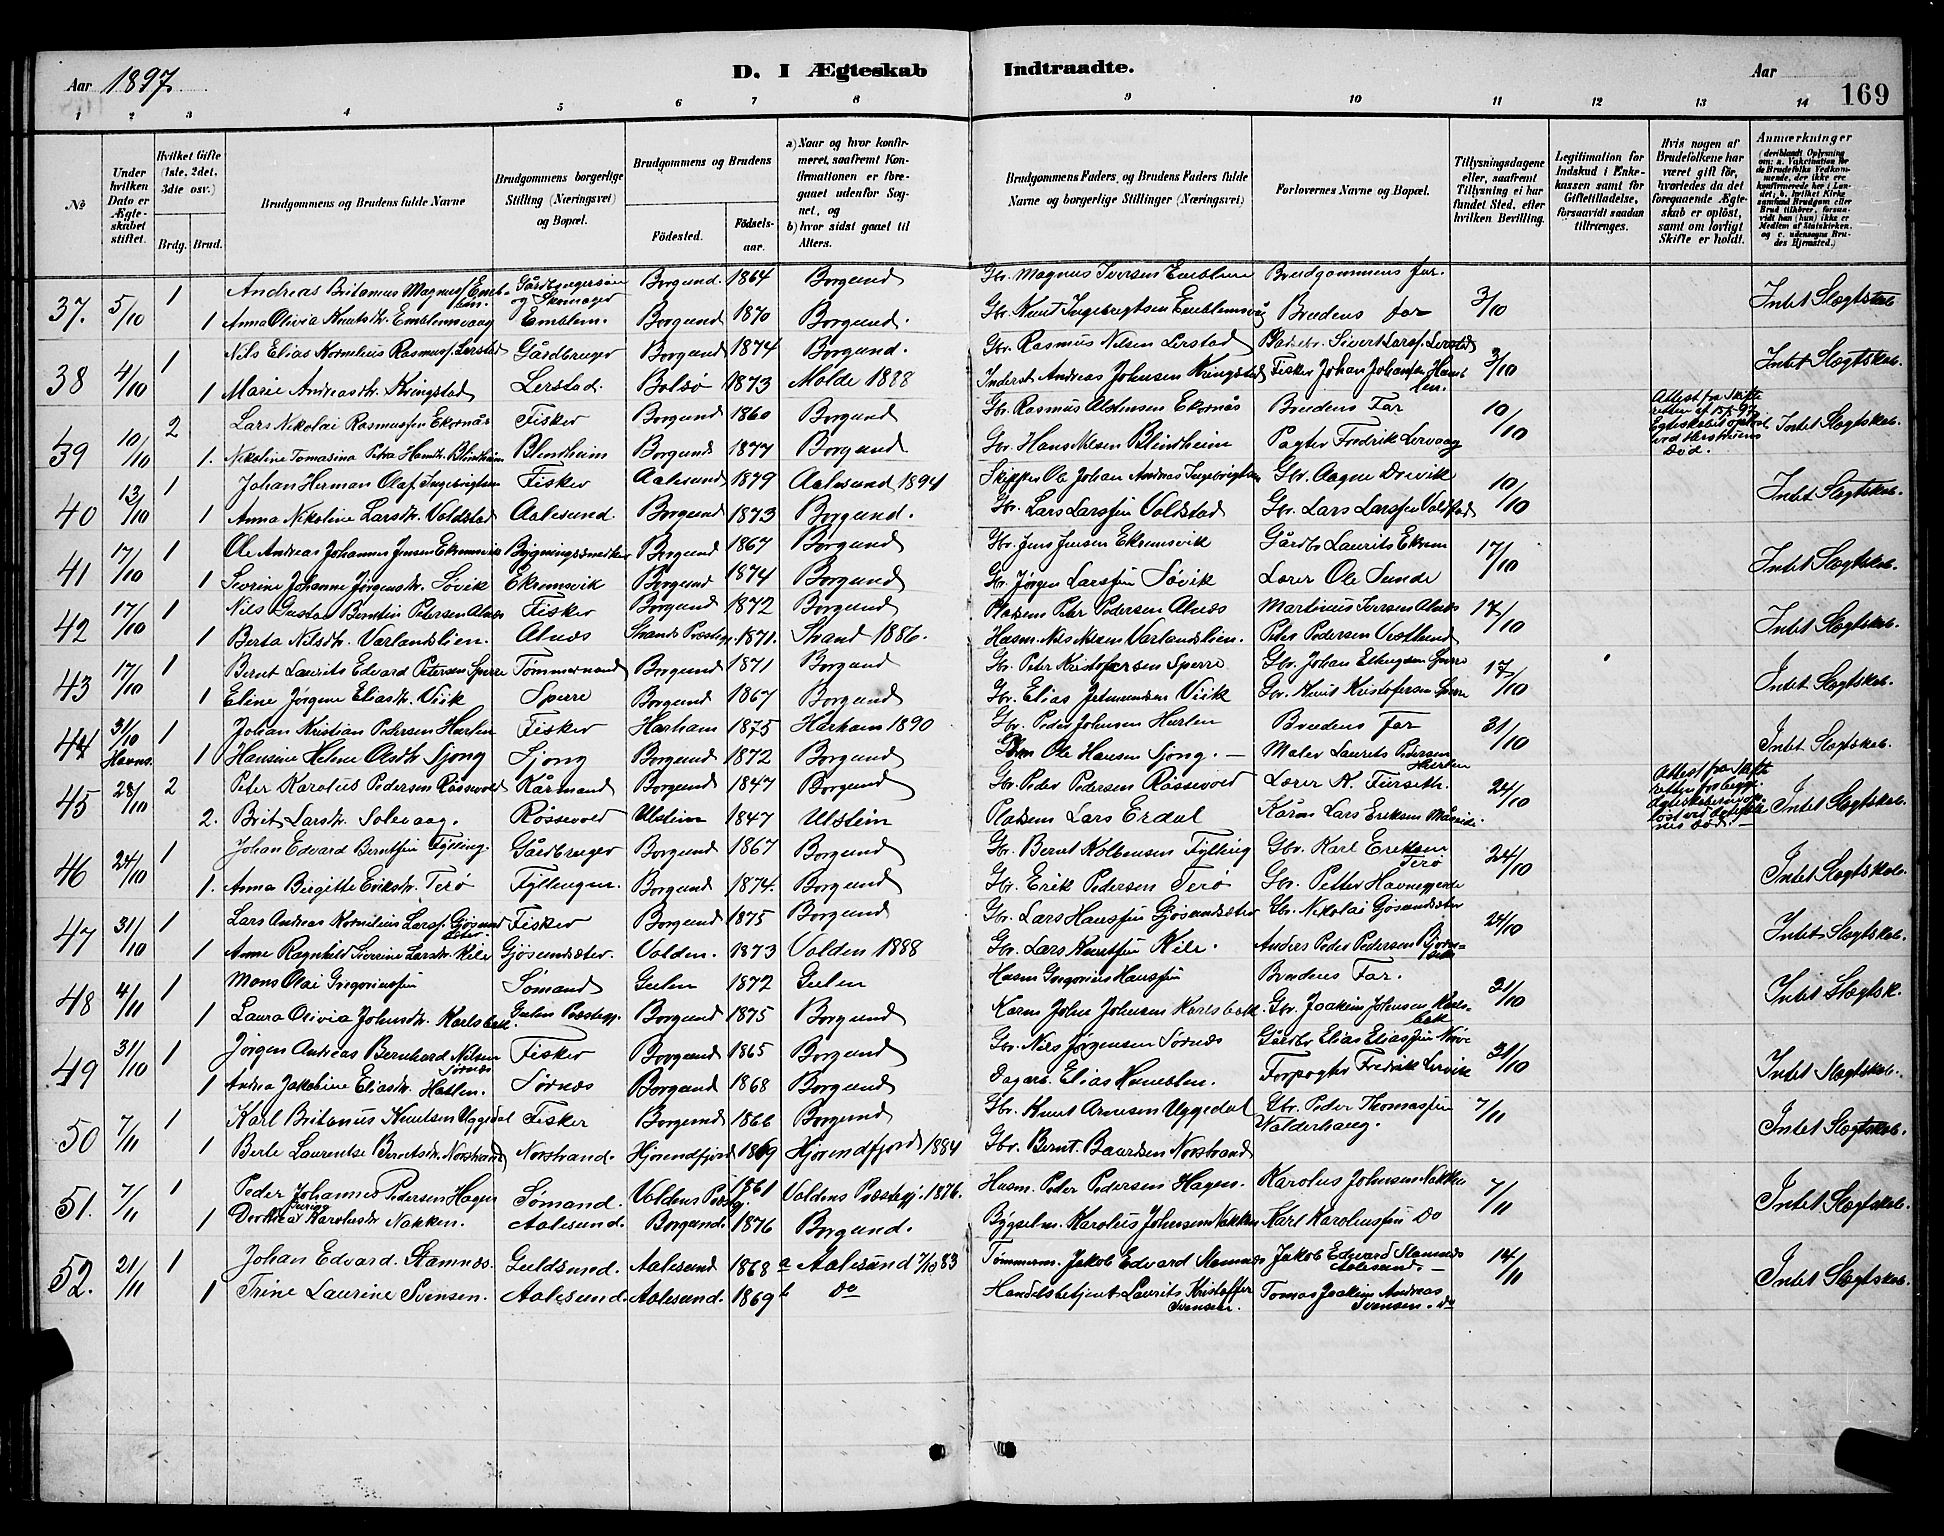 Aar 1897. D. I Ægteskab Indtraadte. Aar 169
1 2 3 4 5 6 7 8 9 10 11 12 13 14
No
Under hvilken Dato er Ægteskabet stiftet.
Hvilket Gifte (1ste, 2det, 3die osv.)
Brdg. Brud.
Brudgommens og Brudens fulde Navne
Brudgommens borgerlige Stilling (Næringsvei) og Bopæl.
Brudgommens og Brudens
Fødested. Fødselsaar.
a) Naar og hvor konfirmeret, saafremt Konfirmationen er foregaaet udenfor Sognet, og
b) hvor sidst gaaet til Alters.
Brudgommens Faders, og Brudens Faders fulde Navne og borgerlige Stillinger (Næringsvei)
Forlovernes Navne og Bopæl.
Tillysningsdagene eller, saafremt Tillysning ei har fundet Sted, efter hvilken Bevilling.
Legitimation for Indskud i Enkekassen samt for Giftetilladelse, forsaavidt saadan tiltrænges.
Hvis nogen af Brudefolkene har været gift før, hvorledes da det foregaaende Ægteskab er opløst, samt om lovligt Skifte er holdt.
Anmærkninger (deriblandt Oplysning om: a. Vakcination for de Brudefolks Vedkommende, der ikke ere konfirmerede her i Landet; b. hvilket Kirkesamfund Brudgom eller Brud tilhører, forsaavidt han (hun) ikke er Medlem af Statskirken, og c. udensogns Brudes Hjemsted.)
37. 5/10 1 Andreas Britanus Magnus Emblem. Gårdbrugersøn og Skomager Borgund. 1864 Borgund Gbr. Magnus Iversen Emblem Brudgommens far. 3/10 Intet Slægtskab
1 Anna Olivia Knutsdr. Emblemsvaag Emblem. Borgund 1870 Borgund. Gbr. Knut Ingebregtsen Emblemsvåg Brudens far
38 4/10 1 Nils Elias Kornelius Rasmuss. Lerstad Gårdbruger Borgund 1874 Borgund. Gbr. Rasmus Nilsen Lerstad Sivert Larss. Lerstad 3/10 Intet Slægtskab.
1 Marie Andreasdtr. Kringstad Lerstad. Bolsø 1873 Molde 1888 Inderst Andreas Johnsen Kringstad Fisker Johan Johansen
39 10/10 2 Lars Nikolai Rasmussen Ekornås Fisker Borgund 1860 Borgund Gbr. Rasmus Ekornås Brudens Far 10/10 Attest fra Skifteretten af Egteskabet opløst ved Hustruens Død. Intet Slægtskab.
1. Nikoline Tomasina Petra Hansdr. Blindheim Blindheim Borgund 1877 Borgund Gbr. Hans Nilsen Blindheim Pagter Fredrik Lervaag
40 13/10 1 Johan Herman Olaf Ingebrigtsen Fisker Aalesund 1879 Aalesund 1894 Skipper Ole Johan Andreas Ingebrigtsen Gbr. Aagne Drevik 10/10 Intet Slægtskab.
1 Anna Nikoline Larsdr. Voldstad Aalesund. Borgund 1873 Borgund. Gbr. Lars Larssen Voldstad Gbr. Lars Larssen Voldstad
41 17/10 1 Ole Andreas Johannes Jensen Ekremsvik Bygningssnedker Borgund 1867 Borgund Gbr. Jens Jensen Ekremsvik Gårdbr Laurits Ekrem 17/10 Intet Slægtskab.
1 Severine Johanne Jørgensdr. Søvik Ekremsvik Borgund 1874 Borgund Gbr. Jørgen Larssen Søvik Lærer Ole Sunde
42 17/10 1 Nils Gustav Bendin Petersen Alnæs Fisker Borgund 1872 Borgund Pladsm Peter Pedersen Alnæs Martinus Iversen Alnæs 17/10 Intet Slægtskab.
1 Berta Nilsdr. Varlandslien. Alnæs Strands Præstegj. 1871. Strand 1886. Husm. Nils Nilsen Varlandslien. Peter Pedersen
43 17/10 1 Bernt Laurits Edvard Petersen Sperre Tømmermand Borgund 1871 Borgund Gbr. Peter Kristofersen Sperre Gbr. Johan Sperre 17/10 Intet Slægtskab.
1 Eline Jørgine Eliasdr. Viik Sperre Borgund 1867 Borgund Gbr. Elias Viik Gbr. Knut Kristofersen Sperre
44 31/10 Havns. 1 Johan Kristian Pedersen Hurlen Fisker Harham 1875 Harham 1890 Gbr. Peder Johnsen Hurlen Brudens Far 31/10 Intet Slægtskab.
1 Hansine Helene Olsdtr Sjong Sjong Borgund 1872 Borgund Ole Hansen Sjong. — Maler Laurits Pedersen Hurlen
45 28/10 2 Peter Karolus Pedersen Røssevold Kårmand Borgund 1847 Borgund Gbr. Peder Pedersen Røssevold Lærer K. Furseth. 24/10 Attest fra Skifteretten for begge. Intet Slægtskab.
2. Brit Larsdr. Solevaag. Røssevold Ulstein 1847 Ulstein Pladsm Lars Erdal Kårm Lars Eriksen
46 24/10 1 Johan Edvard Berntsen Fylling Gårdbruger Borgund 1867 Borgund Gbr. Bernt Kolbensen Fylling Gbr. Karl Eriksen Terø 24/10 Intet Slægtskab.
1. Anna Birgitte Eriksdr. Terø Fyllingen. Borgund 1874. Borgund Gbr. Erik Pedersen Terø Gbr. Petter Havnegjerde
47 31/10 1 Lars Andreas Kornelius Larss. Gjøsundsæter. Fisker Borgund 1875 Borgund Gbr. Lars Hanssen Gjøsundsæter Gbr. Nikolai Gjøsundsæter 24/10 Intet Slægtskab.
1 Anne Ragnhild Severine Larsdr. Kile Gjøsundsæter. Volden. 1873 Volden 1888 Gbr. Lars Knutsen Kile. Anders Peder Pedersen
48 4/11 1 Mons Olai Gregoriussen Sømand Gulen 1872 Gulen Husm Gregorius Hanssen Brudens Far. 31/10 Intet Slægtsk.
1 Laura Olivia Johnsdr. Karlsbakk. Gulen Præstegj. Borgund 1875 Borgund Kårm John Johnsen Karlsbakk Gbr. Joakim Johnsen Karlsbak
49 31/10 1 Jørgen Andreas Bernhard Nilsen Sørnæs Fisker Borgund 1865 Borgund Gbr. Nils Jørgensen Sørnæs Gårdbr Elias Eliassen Nørve 31/10 Intet Slægtskab.
1 Andrea Jakobine Eliasdr. Hatlen. Sørnæs Borgund 1868 Borgund Dagarb. Elias Forpagter Fredrik Lervik
50 7/11 1 Karl Britanus Knutsen Uggedal Fisker Borgund 1866 Borgund Gbr. Knut Arnesen Uggedal Gbr. Peder Thomassen Valderhaug. 7/11 Intet Slægtskab.
1 Berte Laurentse Berntsdr. Norstrand Norstrand. Hjørendfjord 1869 Hjørendfjord 1884 Gbr. Bernt Baardsen Norstrand
51. 7/11 1 Peder Johannes Pedersen Hagen Sømand. Voldens Præstg. 1861 Voldens Præstegj. 1876. Husm. Peder Pedersen Hagen. Karolus Johnsen Nakken 7/11 Intet Slægtskab.
1 Dorthea Karolusdr Nakken. Aalesund. Borgund. 1876 Borgund. Bygselm. Karolus Johnsen Nakken Karl Karolussen Do
52. 21/11 1 Johan Edvard Stamnæs. Guldsmed. Aalesund 1868 a Aalesund 7/10 83 Tømmerm. Jakob Edvard Stamnæs Jakob Edvard Stamnæs Aalesund — 14/11 Intet Slægtskab.
1 Trine Laurine Svensen. Aalesund. Aalesund. 1869 b Do Handelsbetjent Laurits Kristoffer Svensen. Tomas Joakim Andreas Svensen. do